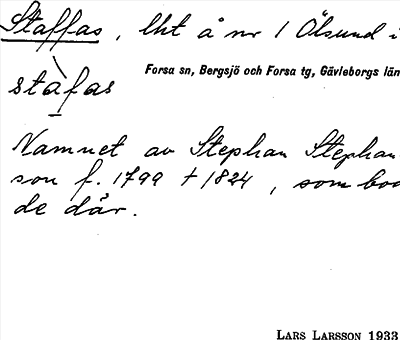 Staffas, lht å nr 1 Ölsund i
Forsa sn, Bergsjö och Forsa tg, Gävleborgs län
stàfas
Namnet av Stephan Stephan
son f. 1799 † 1824, som bod
de där.
LARS LARSSON 1933